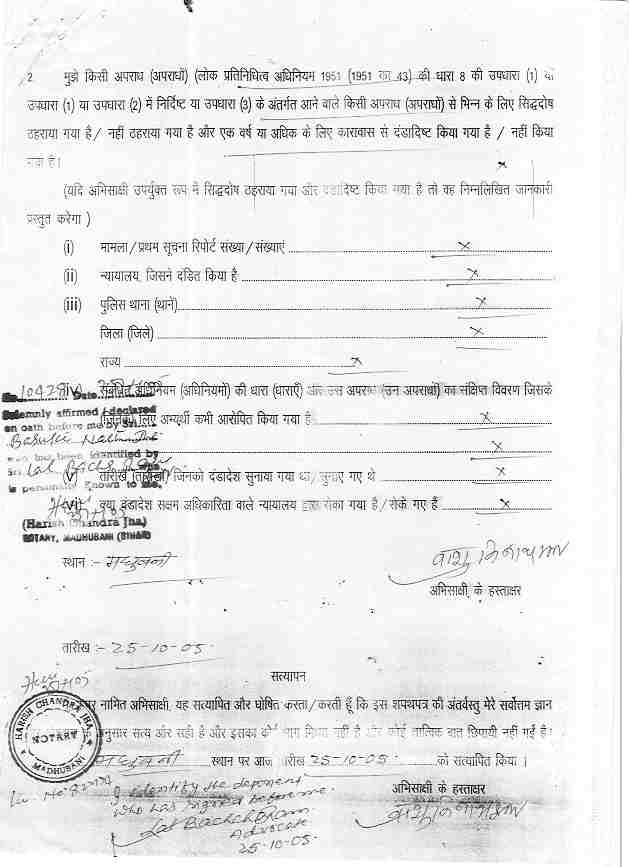 2. मुझे किसी अपराध (अपराधों) (लोक प्रतिनिधित्व अधिनियम 1951 (1951 का 43) की धारा 8 की उपधारा (1) या
उपधारा (1) या उपधारा (2) में निर्दिष्ट या उपधारा (3) के अंतर्गत आने वाले किसी अपराध (अपराधों) से भिन्न के लिए सिद्धदोष
ठहराया गया है / नहीं ठहराया गया है और एक वर्ष या अधिक के लिए कारावास से दंडादिष्ट किया गया है / नहीं किया
गया है।
(यदि अभिसाक्षी उपर्युक्त रूप में सिद्धदोष ठहराया गया और दंडादिष्ट किया गया है तो वह निम्नलिखित जानकारी
प्रस्तुत करेगा )
(i) मामला / प्रथम सूचना रिपोर्ट संख्या / संख्याएं x
(ii) न्यायालय, जिसने दंडित किया है x
(iii) पुलिस थाना (थाने) x
जिला (जिले) x
राज्य x
संबंधित अधिनियम (अधिनियमों) की धारा (धाराएँ) और उस अपराध (उन अपराधों) का संक्षिप्त विवरण जिसके
(जिनके) लिए अभ्यर्थी कभी आरोपित किया गया है x
x
(v) तारीख (तारीखें) जिनको दंडादेश सुनाया गया था / सुनाए गए थे x
(vi) क्या दंडादेश सक्षम अधिकारिता वाले न्यायालय द्वारा रोका गया है / रोके गए हैं x
No. Date
Solemnly affirmed / declared
on oath before me by Sri
who has been identified by
Sri Lal Bachcha Ram who
is personally known to me.
(Harish Chandra Jha)
NOTARY, MADHUBANI (BIHAR)
स्थान :- मधुबनी
अभिसाक्षी के हस्ताक्षर
तारीख :- 25-10-05
सत्यापन
नामित अभिसाक्षी, यह सत्यापित और घोषित करता / करती हूँ कि इस शपथपत्र की अंतर्वस्तु मेरे सर्वोत्तम ज्ञान
अनुसार सत्य और सही है और इसका कोई भाग मिथ्या नहीं है और कोई तात्विक बात छिपायी नहीं गई है।
मधुबनी स्थान पर आज तारीख 25-10-05 को सत्यापित किया ।
HARISH CHANDRA JHA
NOTARY
MADHUBANI
अभिसाक्षी के हस्ताक्षर
I identify the deponent
who has signed before me.
Lal Bachcha Ram
Advocate
25-10-05